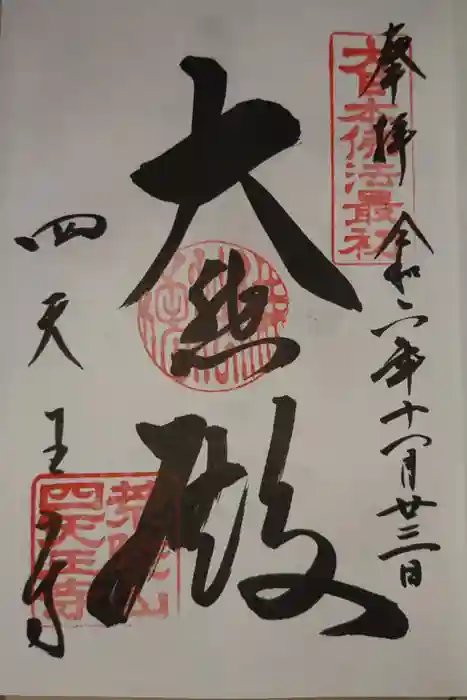 奉拝 令和六年十一月廿三日
大日本佛法最初
大悲殿
四天王寺
荒陵山
四天王寺